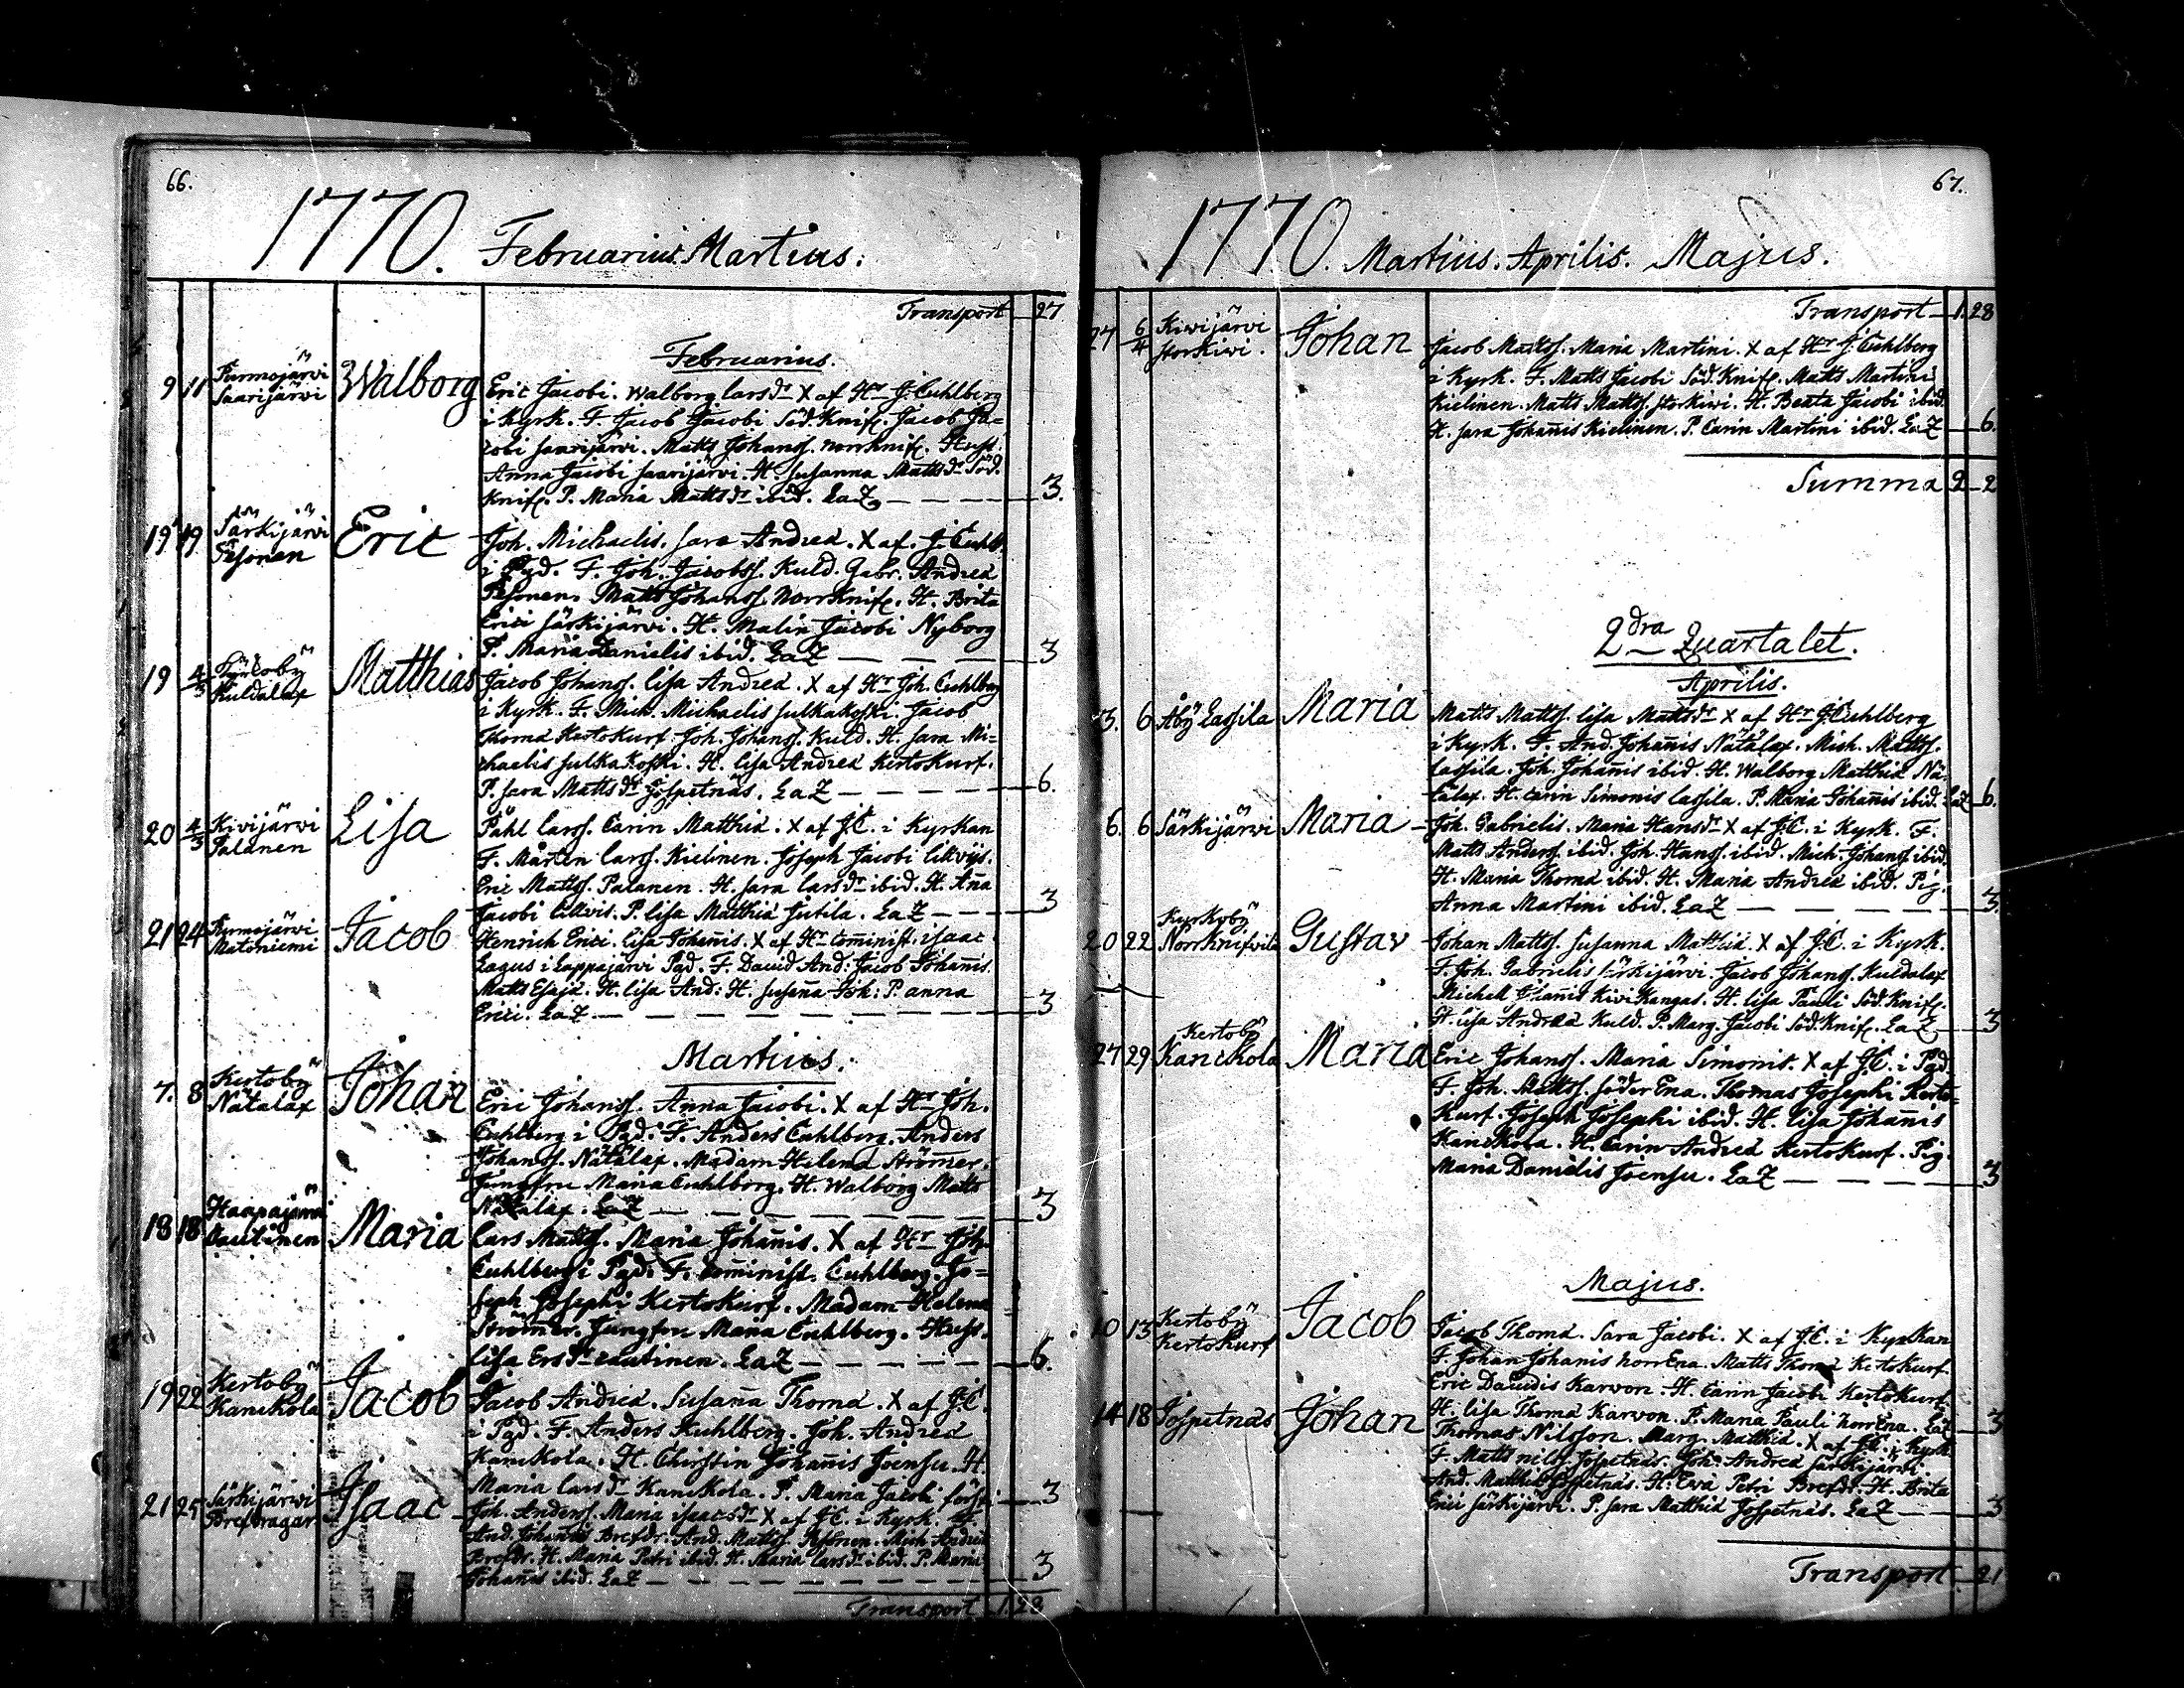 66.
1770. Februarius. Martius.
Transport 27
Februarius.
9 11 Purmojärvi Saarijärvi Walborg Eric Jacobi. Walborg larsdr X af Hr J. Cuhlberg
i Kyrk. F. Jacob Jacobi Söd. Knif. Jacob Ja=
cobi Saarijärvi. Matts Johanss. Norrknif. Hust.
Anna Jacobi Saarijärvi. H. Susanna Mattsdr Söd.
Knif. P. Maria Mattsdr ibid. LaZ 3.
19 19 Särkijärvi Pesonen Eric Joh. Michaelis. Sara Andreæ. X af. J. Cuhlb.
i Pgd. F. Joh. Jacobss. Kuld. Gabr. Andreæ
Pesonen. Matts Johanss Norrknif. H. Brita
Erici Särkijärvi. H. Malin Jacobi Nyborg
P. Maria Danielis ibid. LaZ 3
19 4/3 Kuldalax Matthias Jacob Johanss. lisa Andreæ. X af Hr Joh. Cuhlberg
i Kyrk. F. Mich. Michaelis Sulkakoski. Jacob
Thomæ Kertokurf. Joh. Johanss. Kuld. H. Sara Mi=
chaelis Sulkakoski. H. lisa Andreæ Kertokurf.
P. Sara Mattsdr Jospetnäs. LaZ 6.
20 4/3 Kivijärvi Palanen Lisa Påhl larss. Carin Matthiæ. X af J.C. i Kyrkan
F. Mårten larss. Kielinen. Joseph Jacobi
Eric Mattss. Palanen. H. Sara larsdr ibid. H. Aña
Jacobi P. lisa Matthiæ Sutila. LaZ 3
21 24 Purmojärvi Matoniemi Jacob Henrich Erici. lisa Johañis. X af Hr Comminist. isaac
Lagus i Lappajärvi Pgd. F. David And: Jacob Johañis.
Matts Esaiæ. H. lisa And: H. Susaña Joh: P. anna
Erici. LaZ 3
Martius.
7. 8 Kertoby Nätälax Johan Eric Johanss. Anna Jacobi. X af Hr Joh.
Cuhlberg i Pgd. F. Anders Cuhlberg. Anders
Johanss. Nätälax. Madam Helena Strömer.
Jungfru Maria Cuhlberg. H. Walborg Matts
Nätälax. LaZ 3
18 18 Haapajärvi Cautinen Maria Lars Mattss. Maria Johañis. X af Hr Joh
Cuhlberg i Pgd. F. Cominist. Cuhlberg. Jo=
seph Josephi Kertokurf. Madam Helena
Strömer. Jungfru Maria Cuhlberg. Hust.
lisa Ersdr Cautinen. LaZ 6.
19 22 Kertoby Kanckola Jacob Jacob Andreæ. Susaña Thomæ. X af J.C.
i Pgd. F. Anders Kuhlberg. Joh. Andreæ
Kanckola. H. Chirstin Johañis Joensu. H.
Maria larsdr Kanckola. P. Maria Jacobi 3
21 25 Särkijärvi Brefdragar Isaac Joh. Anderss. Maria isaacsdr X af J.C. i Kyrk. F.
And. Johañis Brefdr. And. Mattss. Pesonen. Mich. Andreæ
Brefdr. H. Maria Petri ibid. H. Maria larsdr ibid. P. Maria
Johañis ibid. LaZ 3
Transport 1. 28
67.
1770. Martius. Aprilis. Majus.
Transport 1. 28
27 6/4 Kivijärvi Storkiwi. Johan Jacob Mattss. Maria Martini. X af Hr J. Cuhlberg
i Kyrk. F. Matts Jacobi Söd. Knif. Matts Martini
Kielinen. Matts Mattss. Storkiwi. H. Beata Jacobi ibid.
H. Sara Johañis Kielinen. P. Carin Martini ibid. LaZ 6.
Summa 2 2
2dra Quartalet.
Aprilis.
3. 6 Åby Lassila Maria Matts Mattss. lisa Mattsdr X af Hr J. Cuhlberg
i Kyrk. F. And. Johañis Nätälax. Mich. Mattss.
Lassila. Joh. Johañis ibid. H. Walborg Matthiæ Nä=
tälax. H. Carin Simonis Lassila. P. Maria Johañis ibid. LaZ 6.
6. 6 Särkijärvi Maria Joh. Gabrielis. Maria Hansdr X af J.C. i Kyrk. F.
Matts Anderss. ibid. Joh. Hanss. ibid. Mich. Johanss ibid.
H. Maria Thomæ ibid. H. Maria Andreæ ibid. Pig.
Anna Martini ibid. LaZ 3.
20 22 Kyrkoby Norrknifvila Gustav Johan Mattss. Susanna Matthiæ. X af J.C. i Kyrk.
F. Joh. Gabrielis Särkijärvi. Jacob Johanss. Kuldalax
Michell Johañis Kivikangas. H. lisa Pauli Söd. Knif.
H. lisa Andreæ Kuld. P. Marg. Jacobi Söd. Knif. LaZ 3
27 29 Kertoby Kanckola Maria Eric Johanss. Maria Simonis. X af J.C. i Pgd.
F. Joh. Mattss. Söder Ena. Thomas Josephi Kerto=
kurf. Joseph Josephi ibid. H. lisa Johañis
Kanckola. H. Carin Andreæ Kertokurf. Pig.
Maria Danielis Joensu. LaZ 3
Majus.
10 13 Kertoby Kertokurf Jacob Jacob Thomæ. Sara Jacobi. X af J.C. i Kyrkan
F. Johan Johanis NorrEna. Matts Thomæ Kertokurf.
Eric Davidis Karvon. H. Carin Jacobi Kertokurf.
H. lisa Thomæ Karvon. P. Maria Pauli NorrEna. LaZ 3
14 18 Jospetnäs Johan Thomas Nilsson. Marg. Matthiæ. X af J.C. i Kyrk
F. Matts nilss. Jospetnäs. Joh. Andreæ Särkijärvi
And. Matthiæ Jospetnäs. H. Eva Petri Brefdr. H. Brita
Erici Särkijärvi. P. Sara Matthiæ Jospetnäs. LaZ 3
Transport 21